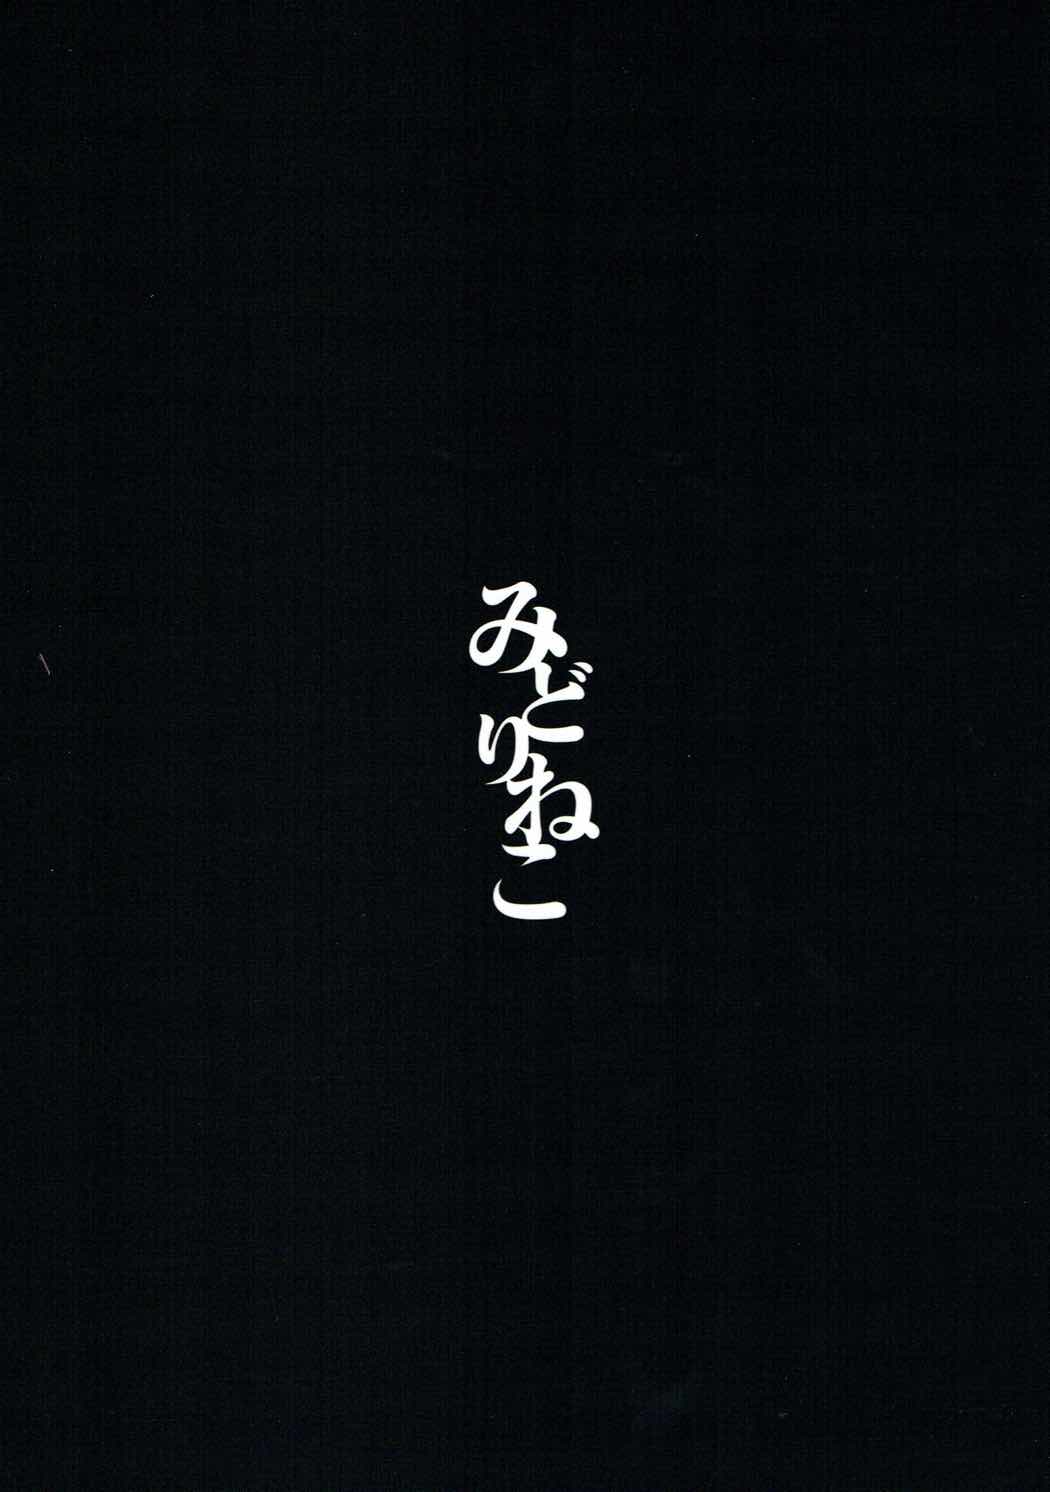 みどりねこ